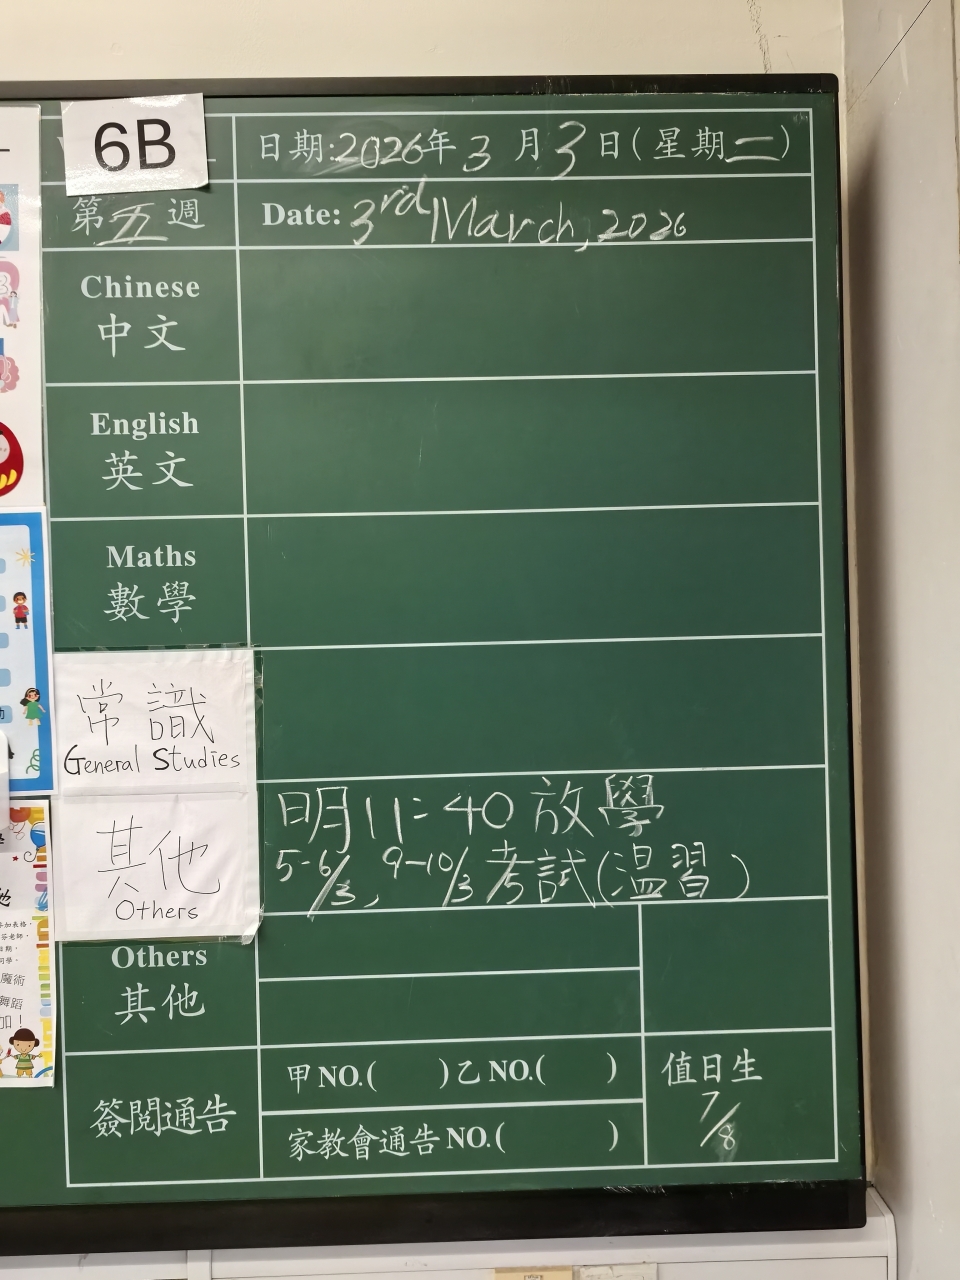 6B
日期:2026年3月3日(星期二)
第五週
Date: 3rd March, 2026
Chinese
中文
English
英文
Maths
數學
常識
General Studies
其他
Others
明11:40放學
5-6/3, 9-10/3 考試(溫習)
Others
其他
簽閱通告
甲NO.( )乙NO.( )
家教會通告NO.( )
值日生
7/8
加表格,
老師,
日期,
同學,
魔術
舞蹈
加!